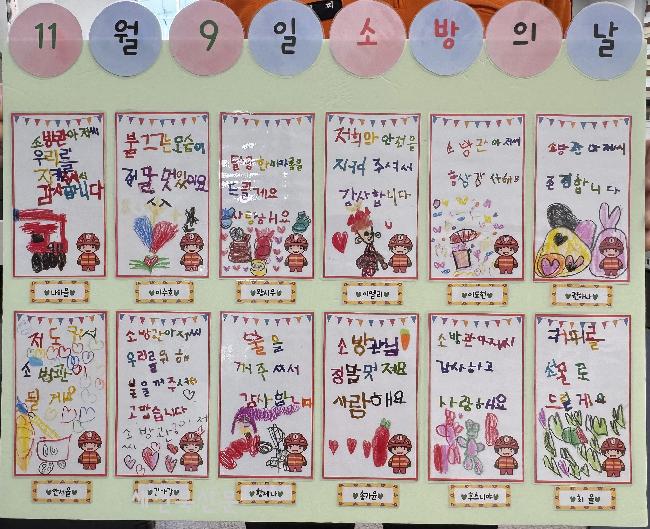 11월 9일 소방의 날
소방관아저씨
우리를
지켜줘서
감사합니다
불끄는모습이
정말 멋있어요
드릴게요
사랑해요
저희의 안전을
지켜 주셔서
감사합니다
소방관아저씨
항상 감사해요
소방관 아저씨
존경합니다
나하율
이수호
이엘리
이도현
저도 커서
소방관이
될게요
소방관아저씨
우리를위해
불을꺼주셔서
고맙습니다
불을
꺼주셔서
감사합니다
소방관님
정말멋져요
사랑해요
소방관아저씨
감사하고
사랑해요
커피를
선물로
드릴게요
송가윤